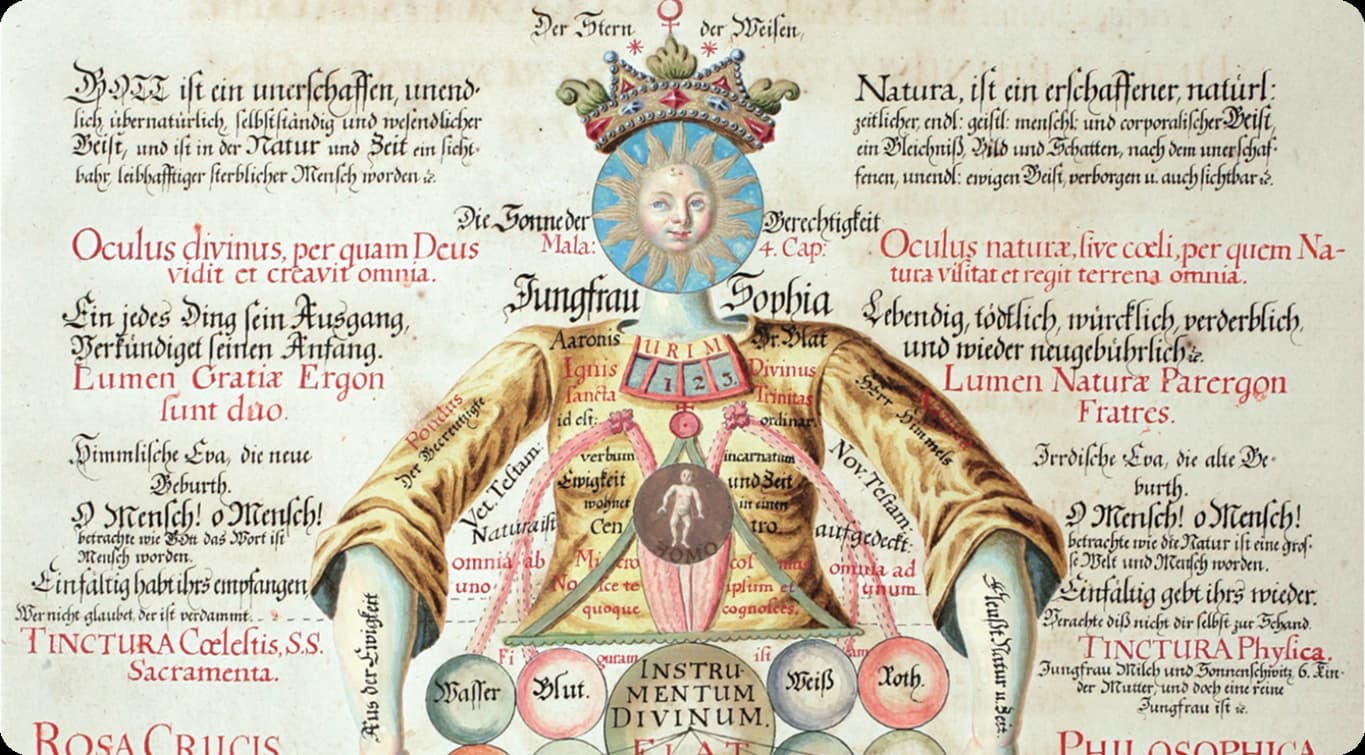 Der Stern der Weisen,
GOTT ist ein unerschaffen, unend-
lich, übernatürlich, selbstständig und wesendlicher
Geist, und ist in der Natur und Zeit ein sicht-
bahr, leibhafftiger sterblicher Mensch worden ꝛc.
Natura, ist ein erschaffener, natürl:
zeitlicher, endl: geistl: menschl: und corporalischer Geist,
ein Gleichniß, Bild und Schatten, nach dem unerschaf-
fenen, unendl: ewigen Geist, verborgen u. auch sichtbar ꝛc.
Die Sonne der Gerechtigkeit
Mala: 4. Cap:
Oculus divinus, per quam Deus
vidit et creavit omnia.
Oculus naturæ, sive cœli, per quem Na-
tura visitat et regit terrena omnia.
Jungfrau Sophia
Ein jedes Ding sein Ausgang,
Verkündiget seinen Anfang.
Lumen Gratiæ Ergon
sunt duo.
Lebendig, tödtlich, würcklich, verderblich,
und wieder neugebührlich ꝛc.
Lumen Naturæ Parergon
Fratres.
Aaronis Br. Blat
URIM
1 2 3.
Ignis Divinus
sancta Trinitas
id est: ordinar.
verbum incarnatum
Ewigkeit und Zeit
wohnet in einen
Cen tro.
HOMO
Micro cosmus
Nosce te ipsum et
quoque cognosces.
Pondus
Der Gerechtigkeit
Herr Himmels
Vet. Testam:
Natura ist
omnia ab
uno
Nov. Testam:
aufgedeckt:
omnia ad
unum
Himmlische Eva, die neue
Geburth.
O Mensch! o Mensch!
betrachte wie Gott das Wort ist
Mensch worden.
Einfältig habt ihrs empfangen
Wer nicht glaubet, der ist verdammt.
TINCTURA Cœlestis, S.S.
Sacramenta.
ROSA CRUCIS
Irrdische Eva, die alte Ge-
burth.
O Mensch! o Mensch!
betrachte wie die Natur ist eine gros-
se Welt und Mensch worden.
Einfältig gebt ihrs wieder.
Verachte diß nicht dir selbst zur Schand.
TINCTURA Physica.
Jungfrau Milch und Sonnenschwitz, 6. Kin-
der Mutter, und doch eine reine
Jungfrau ist ꝛc.
PHILOSOPHICA
Aus der Ewigkeit
fleußt Natur u. Zeit.
Fi guram isti am
Wasser
Blut.
INSTRU-
MENTUM
DIVINUM.
FIAT
Weiß
Roth.